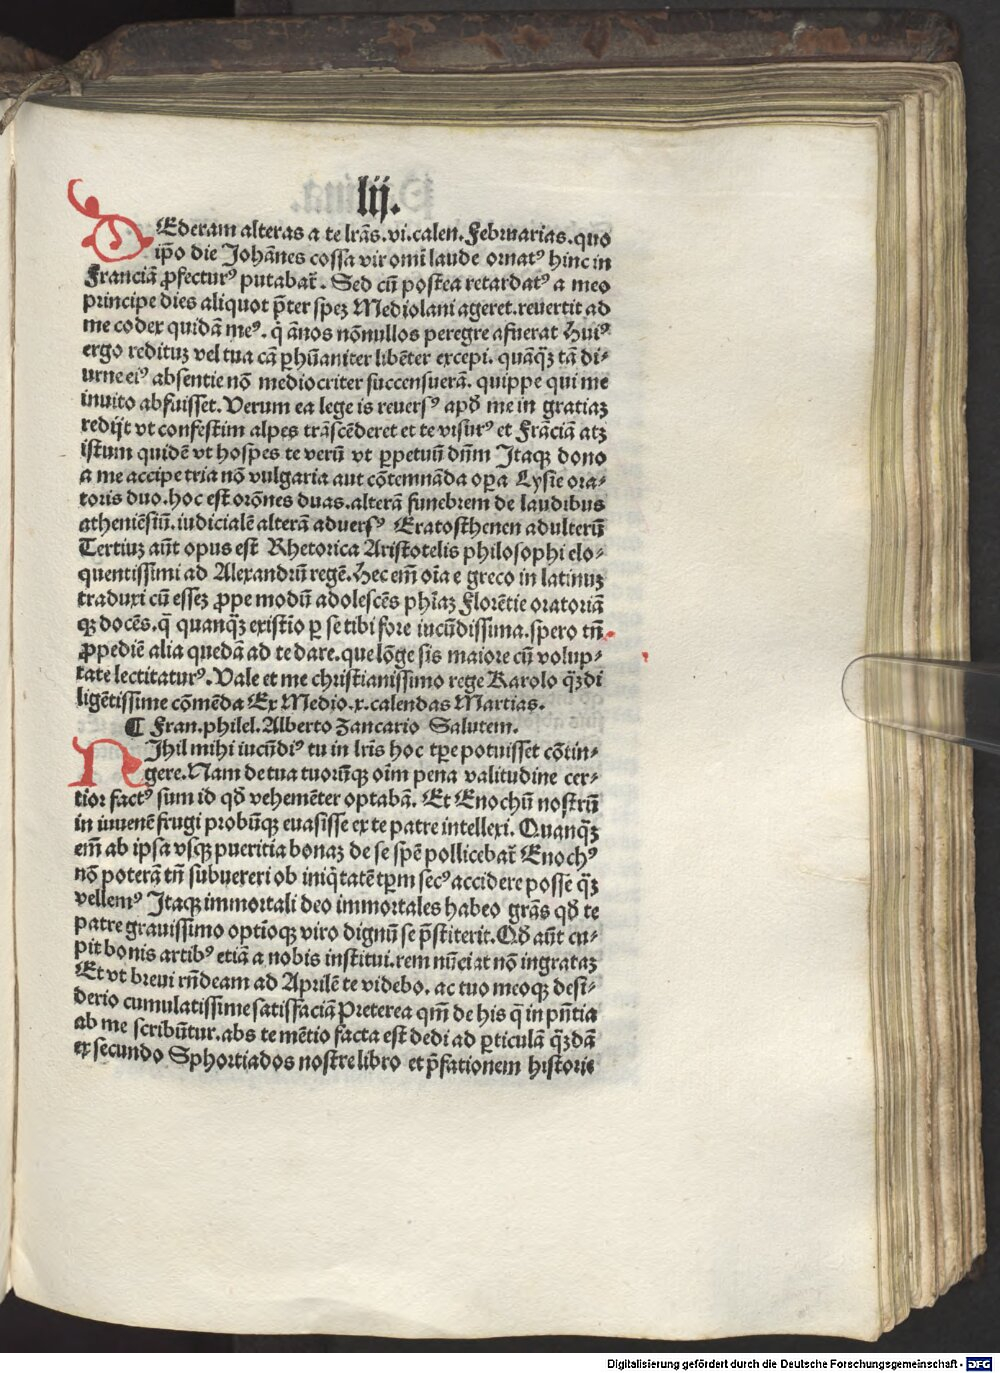 lij.
DEderam alteras a te lr̄as .vi. calen. Februarias. quo
ip̄o die Johānes cossa vir om̄i laude ornatꝰ hinc in
Franciā ꝓfecturꝰ putabat̄. Sed cū postea retardatꝰ a meo
principe dies aliquot p̄ter speꝫ Mediolani ageret. reuertit ad
me codex quidā meꝰ. q̄ ānos nōnullos peregre afuerat Huiꝰ
ergo redituꝫ vel tua cā ꝑhūaniter libēter excepi. quāqꝫ tā di⸗
urne eiꝰ absentie nō mediocriter succensuerā. quippe qui me
inuito abfuisset. Verum ea lege is reuersꝰ apd̄ me in gratiaꝫ
redijt vt confestim alpes trāscēderet et te visurꝰ et Frāciā atꝫ
istum quidē vt hospes te verū vt ꝑpetuū dn̄m Itaqꝫ dono
a me accipe tria nō vulgaria aut cōtemnāda oꝑa Lysie ora⸗
toris duo. hoc est orōnes duas. alterā funebrem de laudibus
atheniēsiū. iudicialē alterā aduersꝰ Eratosthenen adulterū
Tertiuꝫ aūt opus est Rhetorica Aristotelis philosophi elo⸗
quentissimi ad Alexandrū regē. Hec em̄ oīa e greco in latinuꝫ
traduxi cū esseꝫ ꝓpe modū adolescēs phīaꝫ Florētie oratoriā
qꝫ docēs. q̄ quanqꝫ existīo ꝑ se tibi fore iucūdissima. spero tn̄.
ꝓpediē alia quedā ad te dare. que lōge sis maiore cū volup⸗
tate lectitaturꝰ. Vale et me christianissimo rege Karolo qꝫdi
ligētissime cōmēda Ex Medio. x. calendas Martias.
¶ Fran. philel. Alberto Zancario Salutem.
NIhil mihi iucūdiꝰ tu in lr̄is hoc tꝑe potuisset cōtin⸗
gere. Nam de tua tuorūqꝫ oīm pena valitudine cer⸗
tior factꝰ sum id qd̄ vehemēter optabā. Et Enochū nostrū
in iuuenē frugi probūqꝫ euasisse ex te patre intellexi. Quanqꝫ
em̄ ab ipsa vsqꝫ pueritia bonaꝫ de se spē pollicebat̄ Enochꝰ
nō poterā tn̄ subuereri ob iniq̄tatē tꝑm secꝰ accidere posse qꝫ
vellemꝰ Itaqꝫ immortali deo immortales habeo grās qd̄ te
patre grauissimo optīoqꝫ viro dignū se p̄stiterit. Qd̄ aūt cu⸗
pit bonis artibꝰ etiā a nobis institui. rem nūciat nō ingrataꝫ
Et vt breui rn̄deam ad Aprilē te videbo. ac tuo meoqꝫ desi⸗
derio cumulatissime satisfaciā Preterea qm̄ de his q̄ in pn̄tia
ab me scribūtur. abs te mētio facta est dedi ad ꝑticulā qꝫdā
ex secundo Sphortiados nostre libro et p̄fationem historie
Digitalisierung gefördert durch die Deutsche Forschungsgemeinschaft - DFG